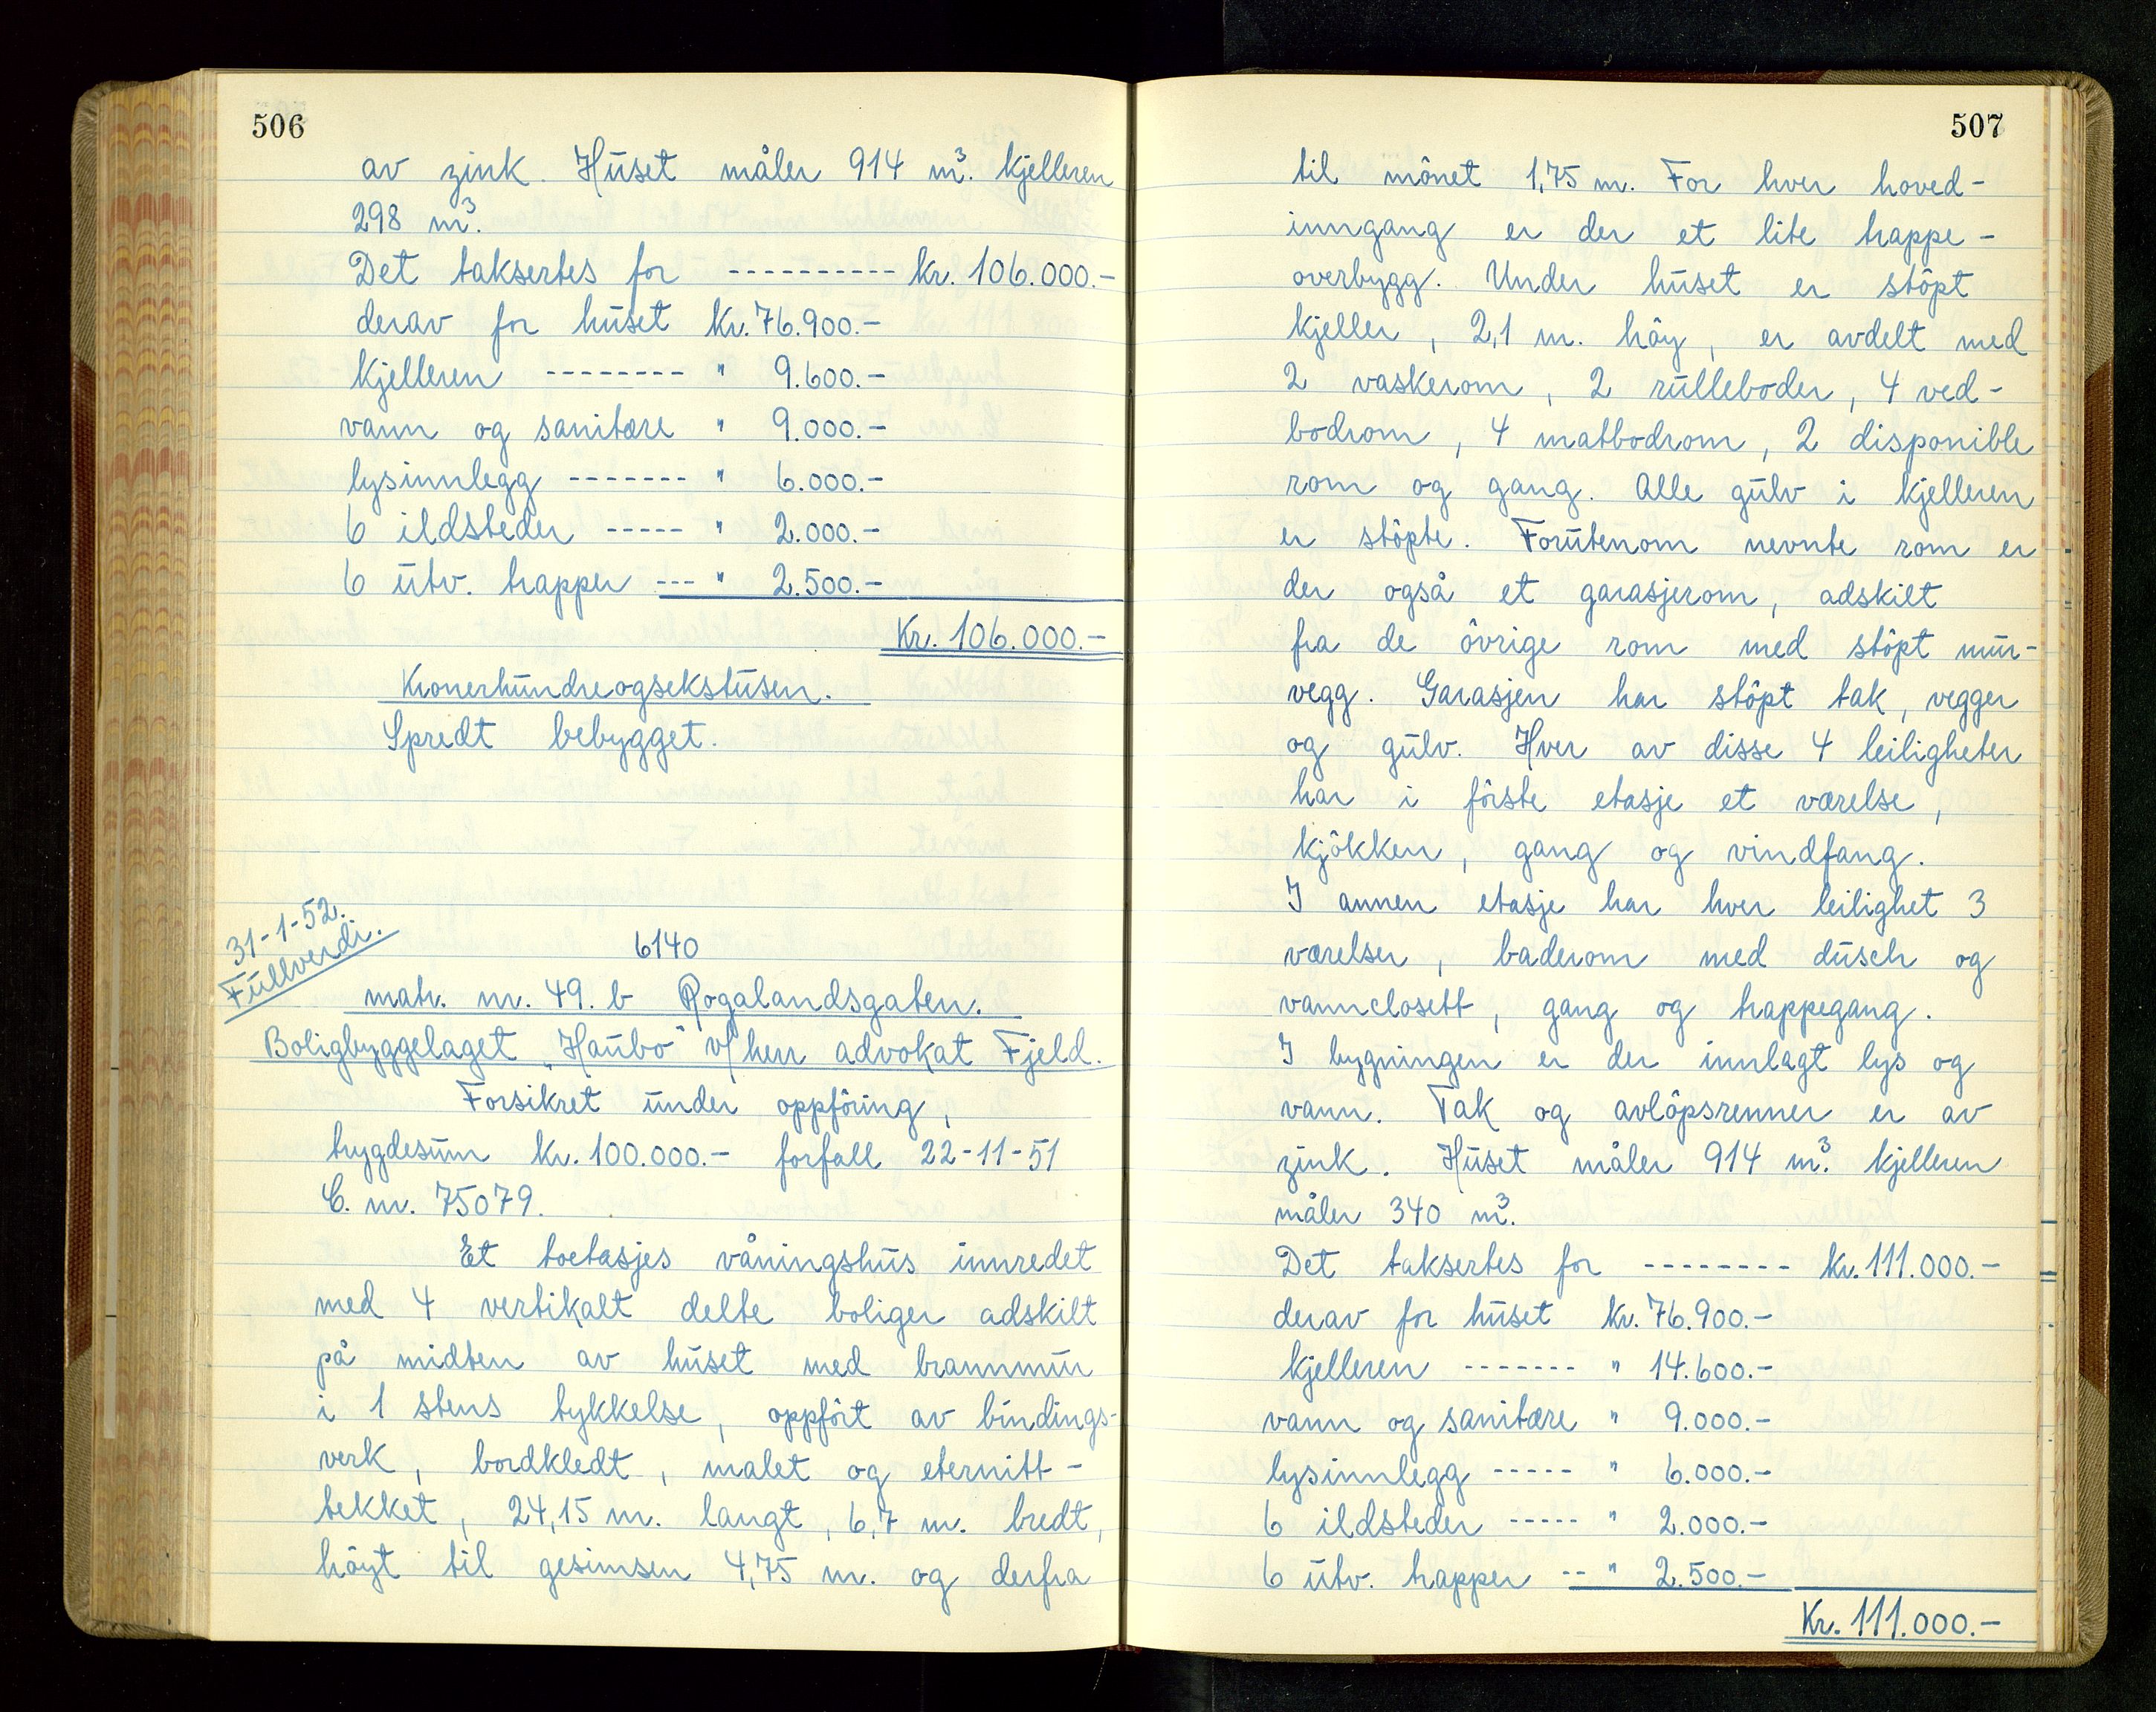 506
av zink. Huset måler 914 m³. kjelleren
298 m³.
Det taksertes for ---------- kr. 106.000.-
derav for huset kr. 76.900.-
kjelleren -------- " 9.600.-
vann og sanitære " 9.000.-
lysinnlegg ------- " 6.000.-
6 ildsteder ----- " 2.000.-
6 utv. trapper --- " 2.500.-
Kr. 106.000.-
Kronerhundreogsekstusen.
Spredt bebygget.
31-1-52.
Fullverdi.
6140
matr. nr. 49. b Rogalandsgaten.
Boligbyggelaget „Haubo" v/ herr advokat Fjeld.
Forsikret under oppföring,
trygdesum kr. 100.000.- forfall 22-11-51
C. nr. 75079.
Et toetasjes våningshus innredet
med 4 vertikalt delte boliger adskilt
på midten av huset med brannmur
i 1 stens tykkelse, oppfört av bindings-
verk, bordkledt, malet og eternitt-
tekket, 24,15 m. langt, 6,7 m. bredt,
höyt til gesimsen 4,75 m. og derfra
507
til mönet 1,75 m. For hver hoved-
inngang er der et lite trappe-
overbygg. Under huset er stöpt
kjeller, 2,1 m. höy, er avdelt med
2 vaskerom, 2 rulleboder, 4 ved-
bodrom, 4 matbodrom, 2 disponible
rom og gang. Alle gulv i kjelleren
er stöpte. Forutenom nevnte rom er
der også et garasjerom, adskilt
fra de övrige rom med stöpt mur-
vegg. Garasjen har stöpt tak, vegger
og gulv. Hver av disse 4 leiligheter
har i förste etasje et værelse,
kjökken, gang og vindfang.
I annen etasje har hver leilighet 3
værelser, baderom med dusch og
vannclosett, gang og trappegang.
I bygningen er der innlagt lys og
vann. Tak og avlöpsrenner er av
zink. Huset måler 914 m³. kjelleren
måler 340 m³.
Det taksertes for -------- kr. 111.000.-
derav for huset kr. 76.900.-
kjelleren ------- " 14.600.-
vann og sanitære " 9.000.-
lysinnlegg ----- " 6.000.-
6 ildsteder ----- " 2.000.-
6 utv. trapper -- " 2.500.-
Kr. 111.000.-